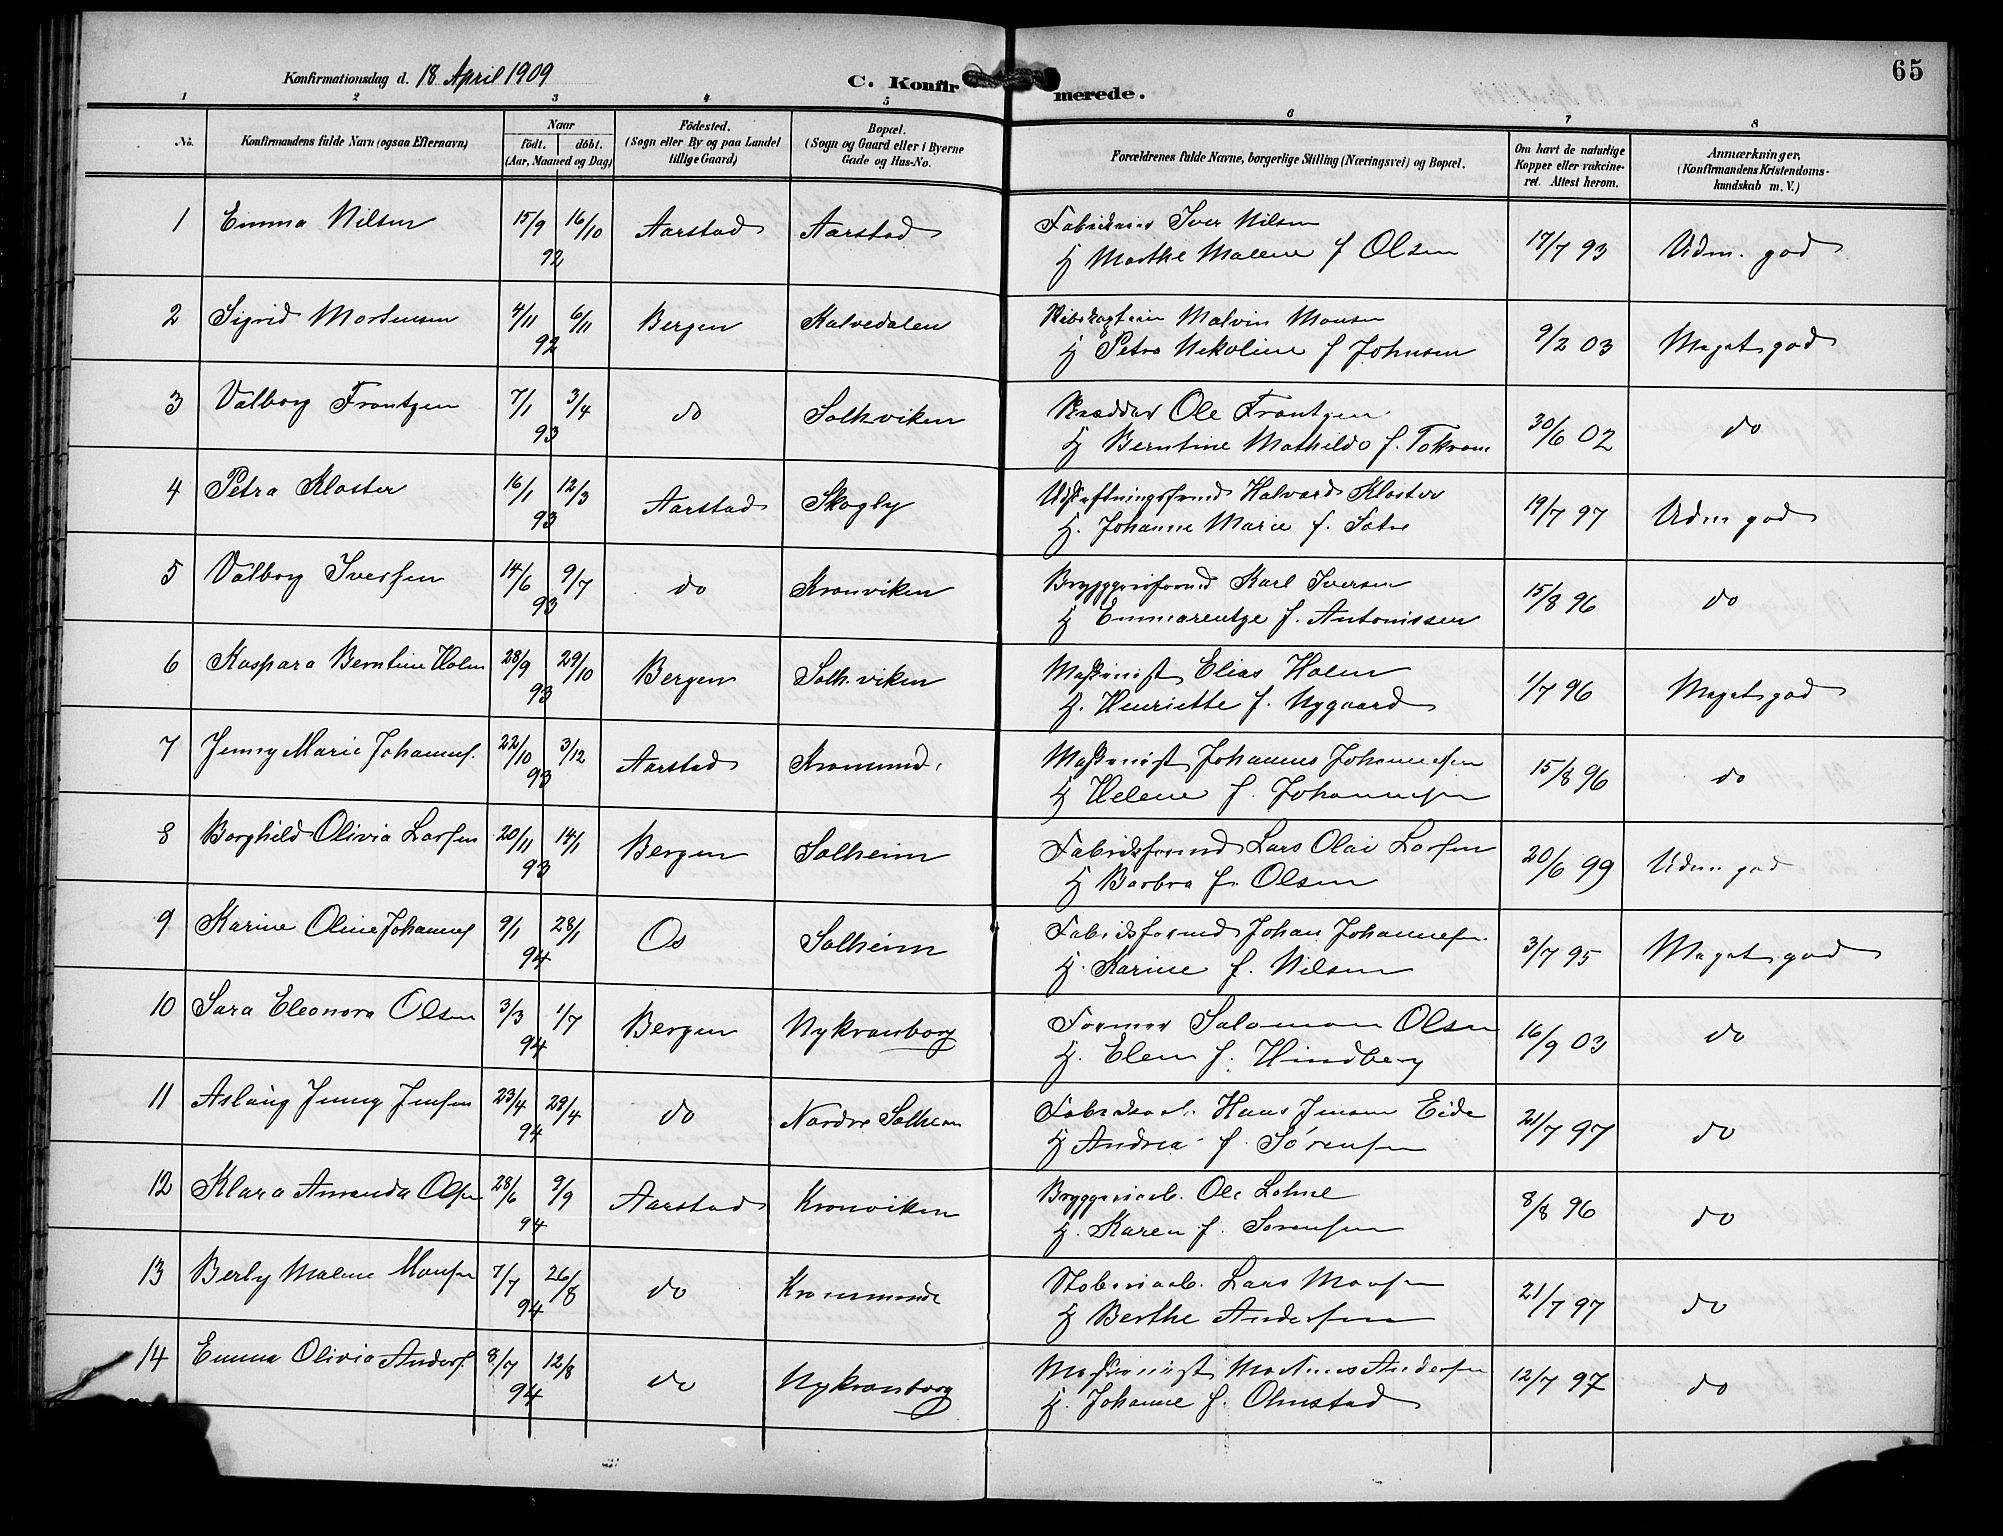 65
Konfirmationsdag d. 18 April 1909
C. Konfirmerede.
1 2 3 4 5 6 7 8
No.
Konfirmandens fulde Navn (ogsaa Efternavn)
Naar
födt. döbt.
(Aar, Maaned og Dag)
Födested.
(Sogn eller By og paa Landet
tillige Gaard)
Bopæl.
(Sogn og Gaard eller i Byerne
Gade og Hus-No.
Forældrenes fulde Navne, borgerlige Stilling (Næringsvei) og Bopæl.
Om havt de naturlige
Kopper eller vakcine-
ret. Attest herom.
Anmærkninger,
(Konfirmandens Kristendoms-
kundskab m. V.)
1 Emma Nilsen 15/9 16/10 92 Aarstad Aarstad
Iver Nilsen
H Marthe Malene f Olsen 17/7 93 Udm. god
2 Sigrid Mortensen 4/11 6/11 92 Bergen Kalvedalen
Skibskaptein Malvin Monsen
H Petra Nikoline f Johnsen 9/2 03 Meget god
3 Valborg Frantzen 7/1 3/4 93 do Solh.viken
Skrædder Ole Frantzen
H Berntine Mathilde f. 30/6 02 do
4 Petra Kloster 16/1 12/3 93 Aarstad Skogly
Udskiftningsformd Halvard Kloster
H. Johanne Marie f. Sætre 19/7 97 Udm god
5 Valborg Iversen 14/6 9/7 93 do Kronviken
Bryggeriformd Karl Iversen
H Emmarentze f. Antonissen 15/8 96 do
6 Kaspara Berntine Holm 28/9 29/10 93 Bergen Solh.viken
Maskinist Elias Holm
H. Henriette f. Nygaard 1/7 96 Meget god
7 Jenny Marie Johannes. 22/10 3/12 93 Aarstad Kronmind.
Maskinist Johannes Johannesen
H Helene f. Johannesen 15/8 96 do
8 Borghild Olivia Larsen 20/11 14/1 93 Bergen Solheim
Fabriksformd Lars Olai Larsen
H Barbra f. Olsen 20/6 99 Udm god
9 Karine Oline Johannes 9/1 28/1 94 Os Solheim
Fabriksformd Johan Johannesen.
H. Karine f. Nilsen 3/7 95 Meget god
10 Sara Eleonora Olsen 3/3 1/7 94 Bergen Nykronborg
Former Salomon Olsen
H. Elen f. Hindberg 16/9 03 do
11 Aslaug Jenny Jensen 23/4 29/4 94 do Nordre Solheim
Fabriksarb. Hans Jensen Eide
H Andrea f. Sörensen 21/7 97 do
12 Klara Amanda Olsen 28/6 9/9 94 Aarstad Kronviken
Bryggeriarb. Ole Lohne
H. Karen f. Sørensen 8/8 96 do
13 Berly Malene Monsen 7/7 26/8 94 do Kronminde
Lars Monsen
H Berthe Andersen 21/7 97 do
14 Emma Olivia Anders. 8/7 12/8 94 do Nykronborg
Maskinist Martinus Andersen
H. Johanne f. Olmstad 12/7 97 do